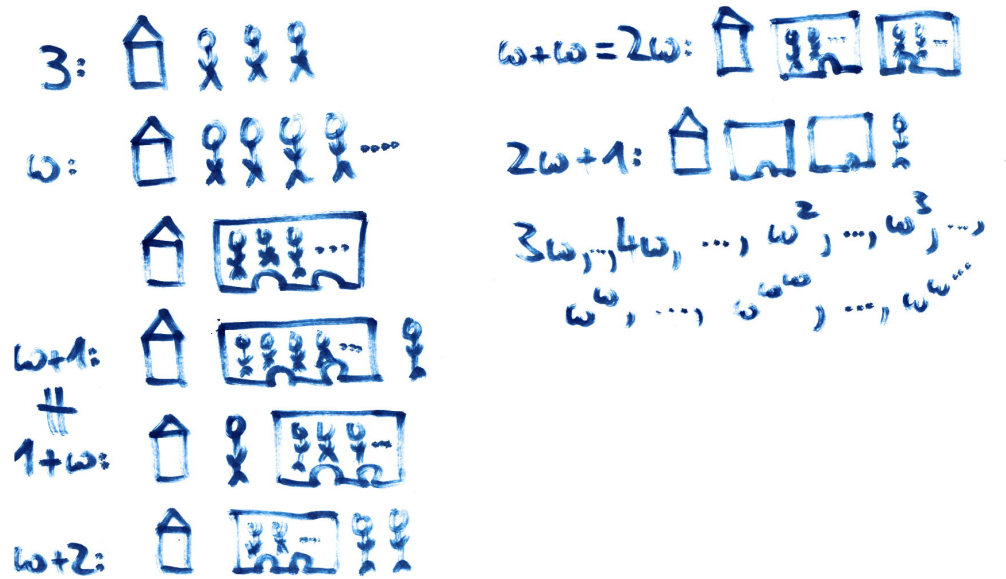 3:
ω:
ω+1:
≠
1+ω:
ω+2:
ω+ω=2ω:
2ω+1:
3ω,...,4ω, ..., ω², ..., ω³, ...,
ω^ω, ...., ω^ω^ω, ...., ω^ω^...